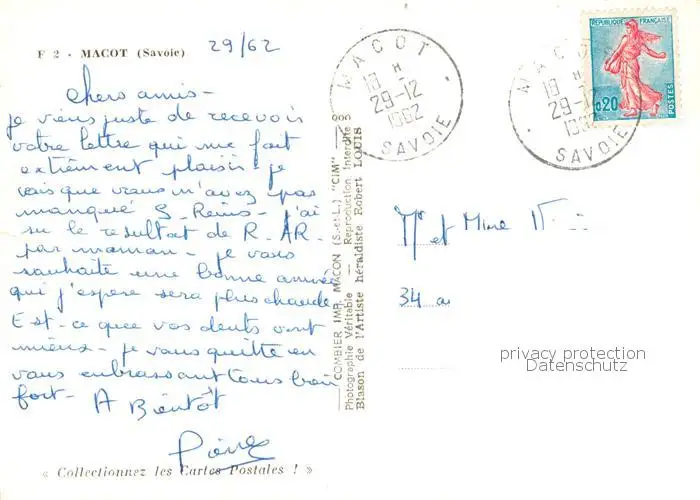 F 2 - MACOT (Savoie) 29/62
chers amis -
je viens juste de recevoir
votre lettre qui me fait
extrêment plaisir - je
vois que vous m'avez pas
manqué S. Reims - j'ai
su le resultat de R. AR.
par maman - je vous
souhaite une bonne année
qui j'espere sera plus chaude
Est-ce que vos dents vont
mieux - je vous quitte en
vous embrassant tous bien
fort - A Bientôt
Pierre
« Collectionnez les Cartes Postales ! »
COMBIER IMP. MACON (S.-et-L.) "CIM"
Photographie Véritable — Reproduction Interdite
Blason de l'Artiste héraldiste Robert LOUIS
MACOT
18 H
29-12
1962
SAVOIE
MACOT
18 H
29-12
1962
SAVOIE
RÉPUBLIQUE FRANÇAISE
0,20
POSTES
Mr et Mme
34
privacy protection
Datenschutz